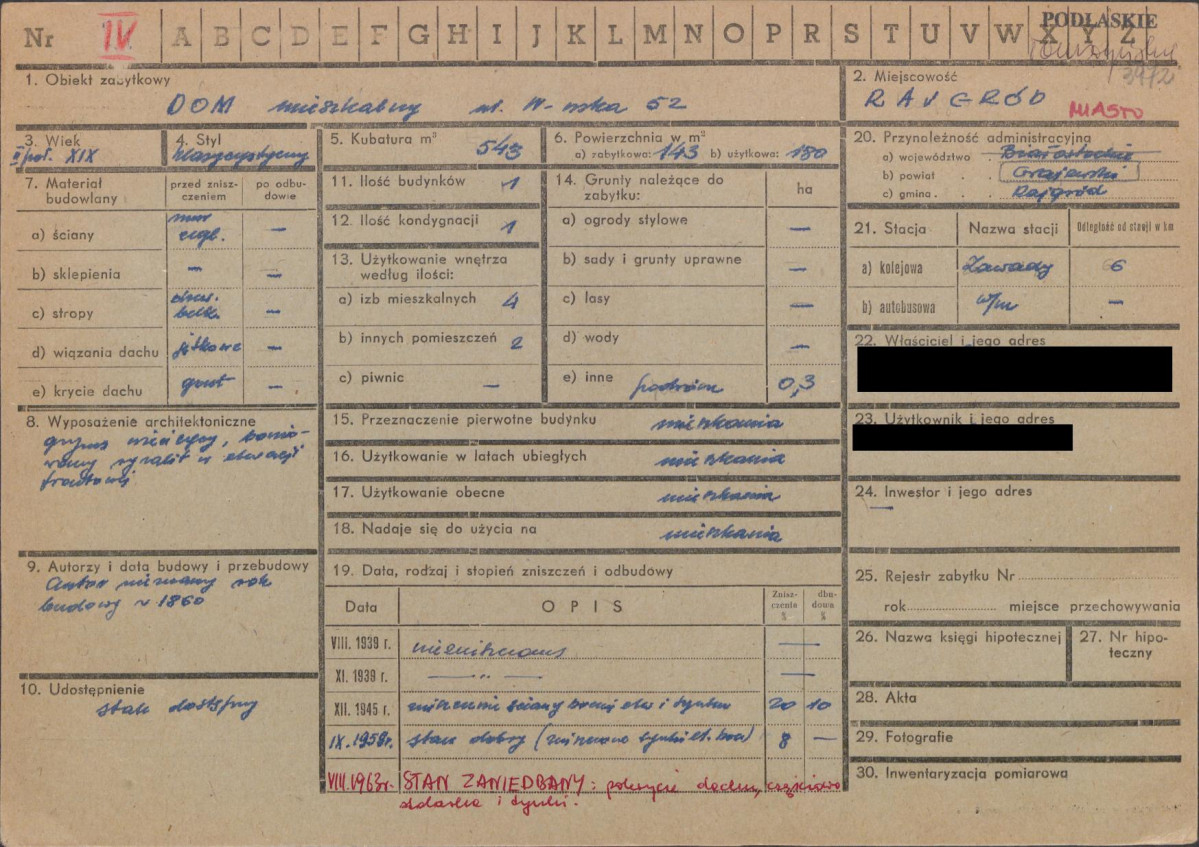 Nr IV A B C D E F G H I J K L M N O P R S T U V W X Y Z
PODLASKIE
3972
1. Obiekt zabytkowy
DOM mieszkalny ul. W-wska 52
2. Miejscowość
RAJGRÓD
MIASTO
3. Wiek
II poł. XIX
4. Styl
klasycystyczny
5. Kubatura m³ 543
6. Powierzchnia w m²
a) zabytkowa: 143 b) użytkowa: 180
20. Przynależność administracyjna
a) województwo Białostockie
b) powiat Grajewski
c) gmina Rajgród
7. Materiał budowlany
przed zniszczeniem
po odbudowie
a) ściany mur cegl. —
b) sklepienia — —
c) stropy drew. belk. —
d) wiązania dachu jętkowe —
e) krycie dachu gont —
11. Ilość budynków 1
12. Ilość kondygnacji 1
13. Użytkowanie wnętrza
według ilości:
a) izb mieszkalnych 4
b) innych pomieszczeń 2
c) piwnic —
14. Grunty należące do
zabytku: ha
a) ogrody stylowe —
b) sady i grunty uprawne —
c) lasy —
d) wody —
e) inne podwórze 0,3
21. Stacja Nazwa stacji Odległość od stacji w km
a) kolejowa Zawady 6
b) autobusowa w/m —
22. Właściciel i jego adres
23. Użytkownik i jego adres
24. Inwestor i jego adres
—
8. Wyposażenie architektoniczne
gzyms wieńczący, bonio-
wany ryzalit w elewacji
frontowej
15. Przeznaczenie pierwotne budynku mieszkania
16. Użytkowanie w latach ubiegłych mieszkania
17. Użytkowanie obecne mieszkania
18. Nadaje się do użycia na mieszkania
9. Autorzy i data budowy i przebudowy
Autor nieznany rok
budowy ~ 1860
10. Udostępnienie
stale dostępny
19. Data, rodzaj i stopień zniszczeń i odbudowy
Data OPIS Zniszczenia % dbudowa %
VIII. 1939 r. niezniszczony —
XI. 1939 r. — „ — —
XII. 1945 r. zniszczenie ściany bocznej elew i tynków 20 10
IX. 1958 r. stan dobry (zniszczone tynki el. bocz) 8 —
VIII. 1963 r. STAN ZANIEDBANY: pokrycie dachu, częściowo
stolarka i tynki.
25. Rejestr zabytku Nr
rok miejsce przechowywania
26. Nazwa księgi hipotecznej
27. Nr hipo-
teczny
28. Akta
29. Fotografie
30. Inwentaryzacja pomiarowa